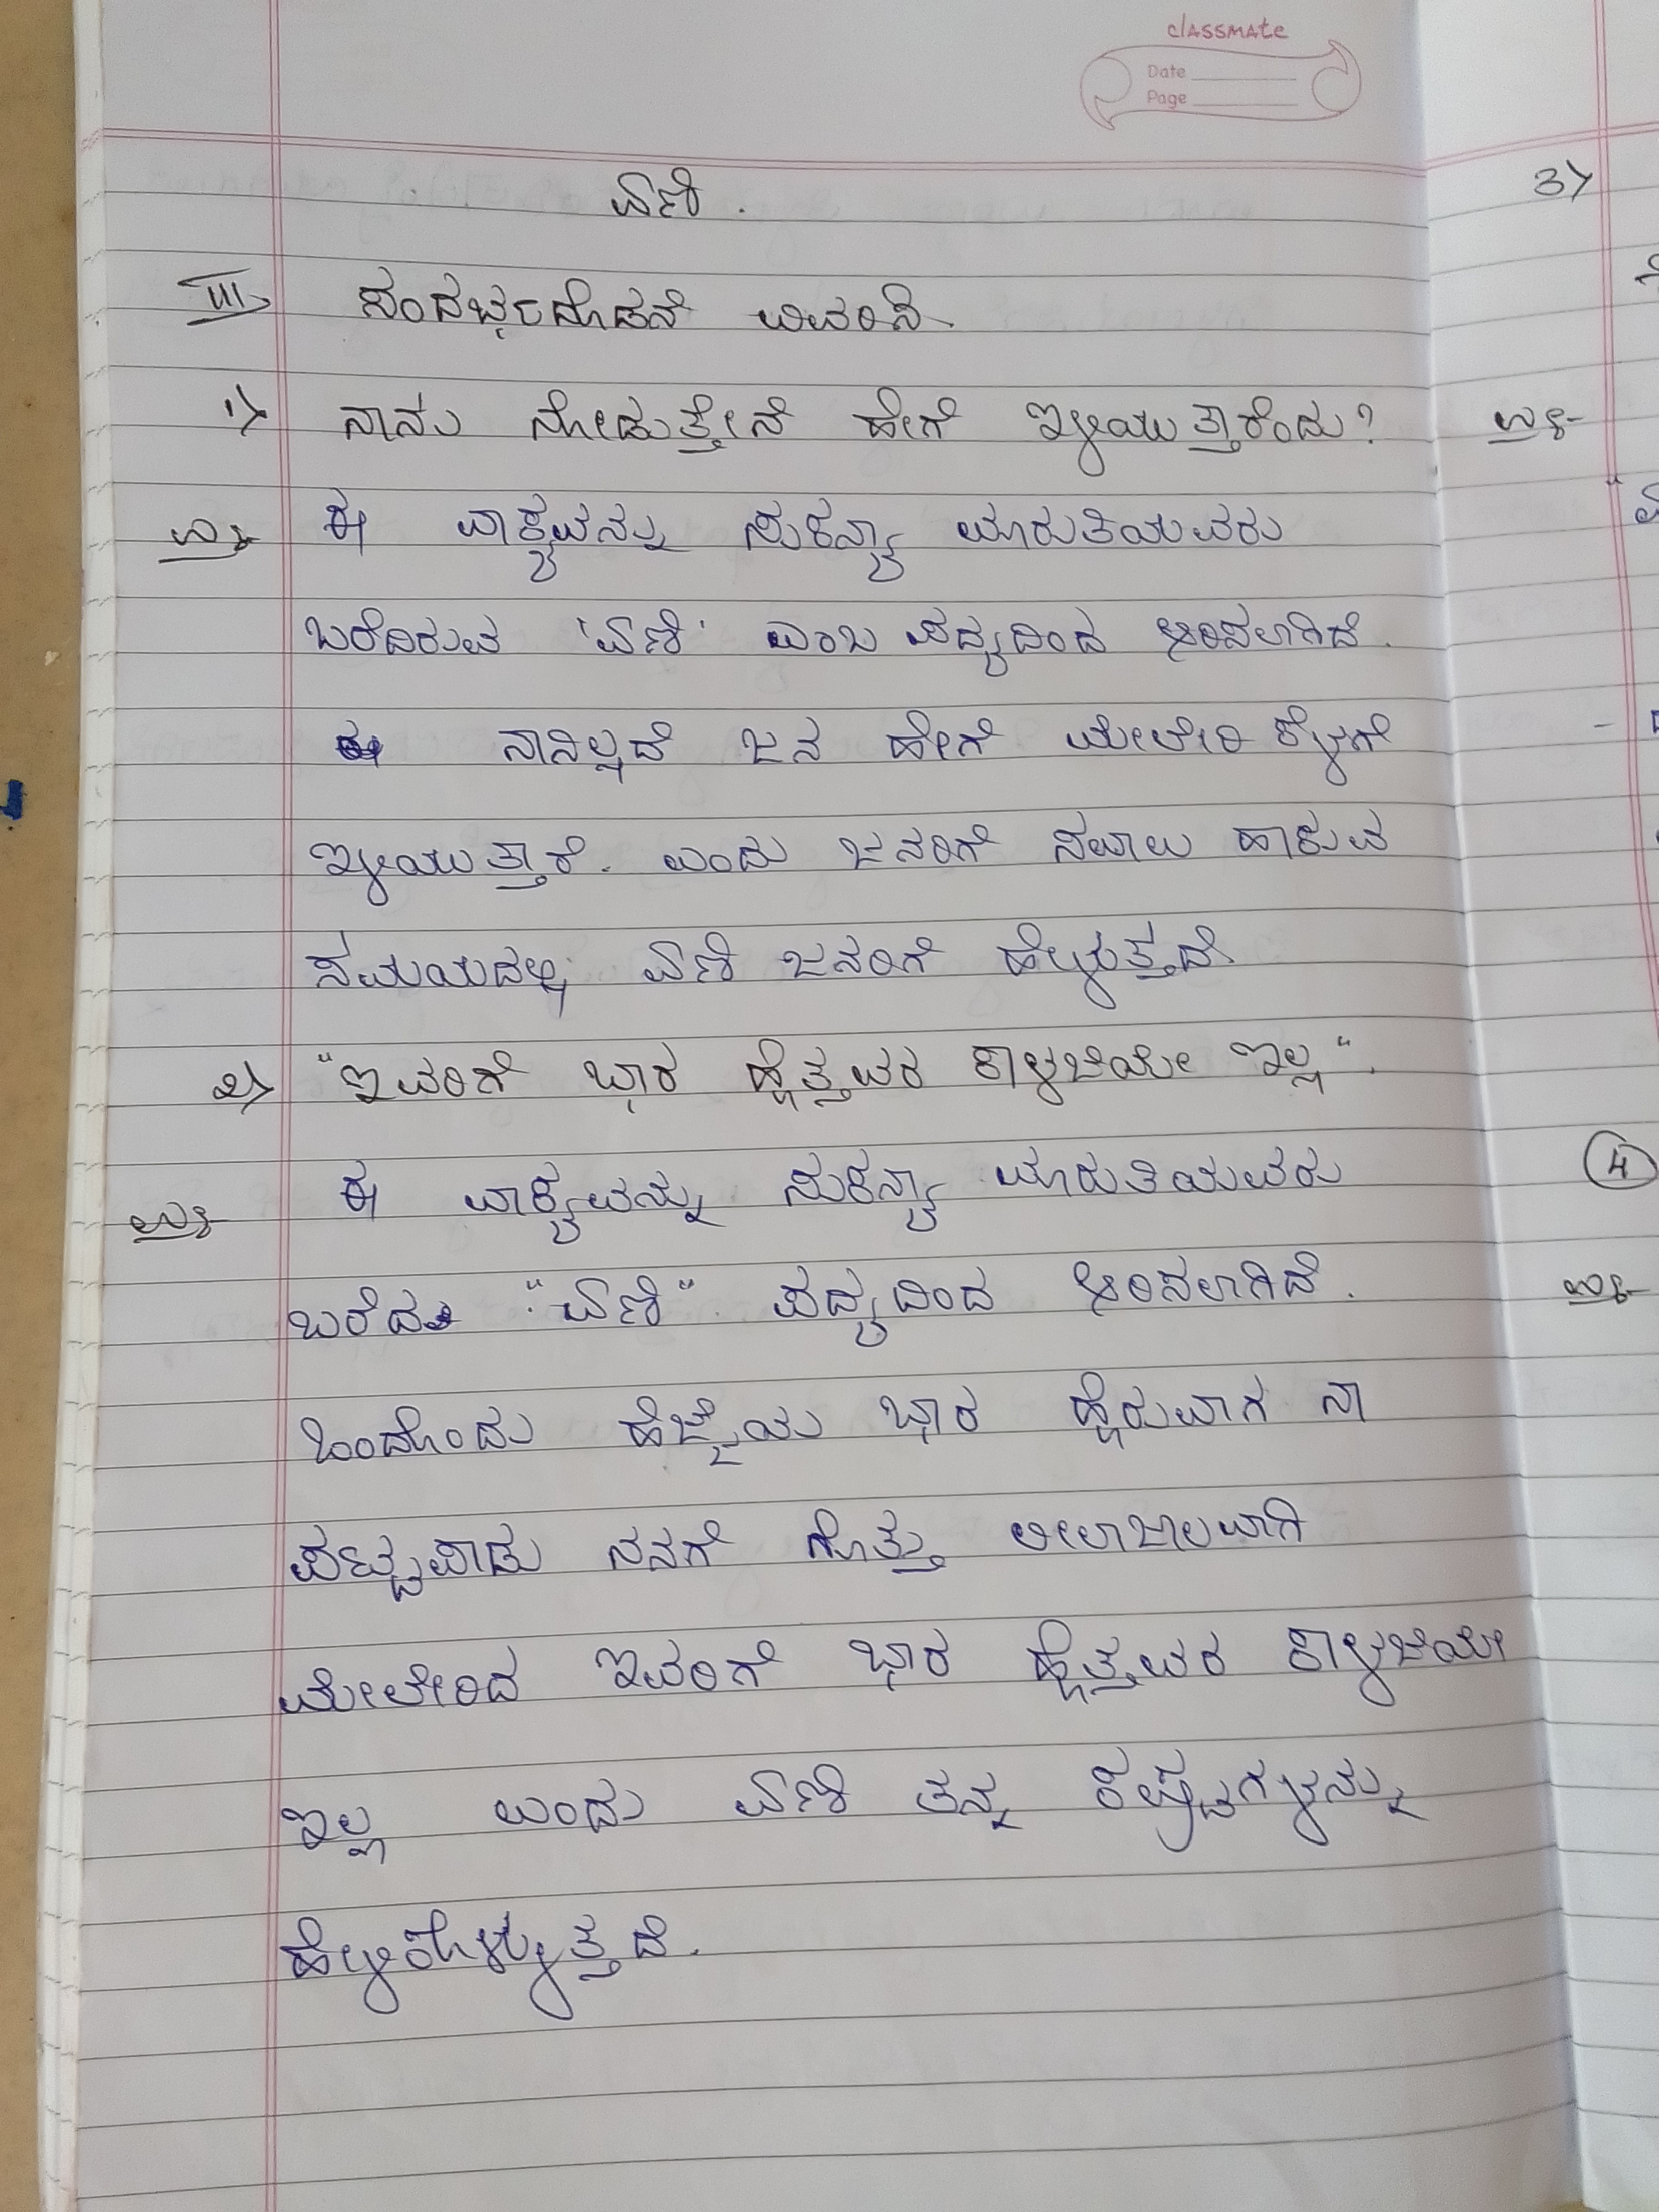 classmate
Date
Page
ಏಣಿ.
III> ಸಂದರ್ಭದೊಡನೆ ವಿವರಿಸಿ.
1> ನಾನು ನೋಡುತ್ತೇನೆ ಹೇಗೆ ಇಳಿಯುತ್ತಾರೆಂದು?
ಉ:- ಈ ವಾಕ್ಯವನ್ನು ಸುಕನ್ಯಾ ಮಾರುತಿಯವರು
ಬರೆದಿರುವ 'ಏಣಿ' ಎಂಬ ಪದ್ಯದಿಂದ ಆರಿಸಲಾಗಿದೆ.
ನಾನಿಲ್ಲದೆ ಜನ ಹೇಗೆ ಮೇಲೇರಿ ಕೆಳಗೆ
ಇಳಿಯುತ್ತಾರೆ. ಎಂದು ಜನರಿಗೆ ಸವಾಲು ಹಾಕುವ
ಸಮಯದಲ್ಲಿ ಏಣಿ ಜನರಿಗೆ ಹೇಳುತ್ತದೆ.
2> "ಇವರಿಗೆ ಭಾರ ಹೊತ್ತವರ ಕಾಳಜಿಯೇ ಇಲ್ಲ".
ಉ:- ಈ ವಾಕ್ಯವನ್ನು ಸುಕನ್ಯಾ ಮಾರುತಿಯವರು
ಬರೆದ "ಏಣಿ" ಪದ್ಯದಿಂದ ಆರಿಸಲಾಗಿದೆ.
ಒಂದೊಂದು ಹೆಜ್ಜೆಯ ಭಾರ ಹೊರುವಾಗ ನಾ
ಪಟ್ಟಪಾಡು ನನಗೆ ಗೊತ್ತು ಲೀಲಾಜಾಲವಾಗಿ
ಮೇಲೇರಿದ ಇವರಿಗೆ ಭಾರ ಹೊತ್ತವರ ಕಾಳಜಿಯೇ
ಇಲ್ಲ ಎಂದು ಏಣಿ ತನ್ನ ಕಷ್ಟಗಳನ್ನು
ಹೇಳಿಕೊಳ್ಳುತ್ತದೆ.
3>
ಉ:-
4
ಉ:-